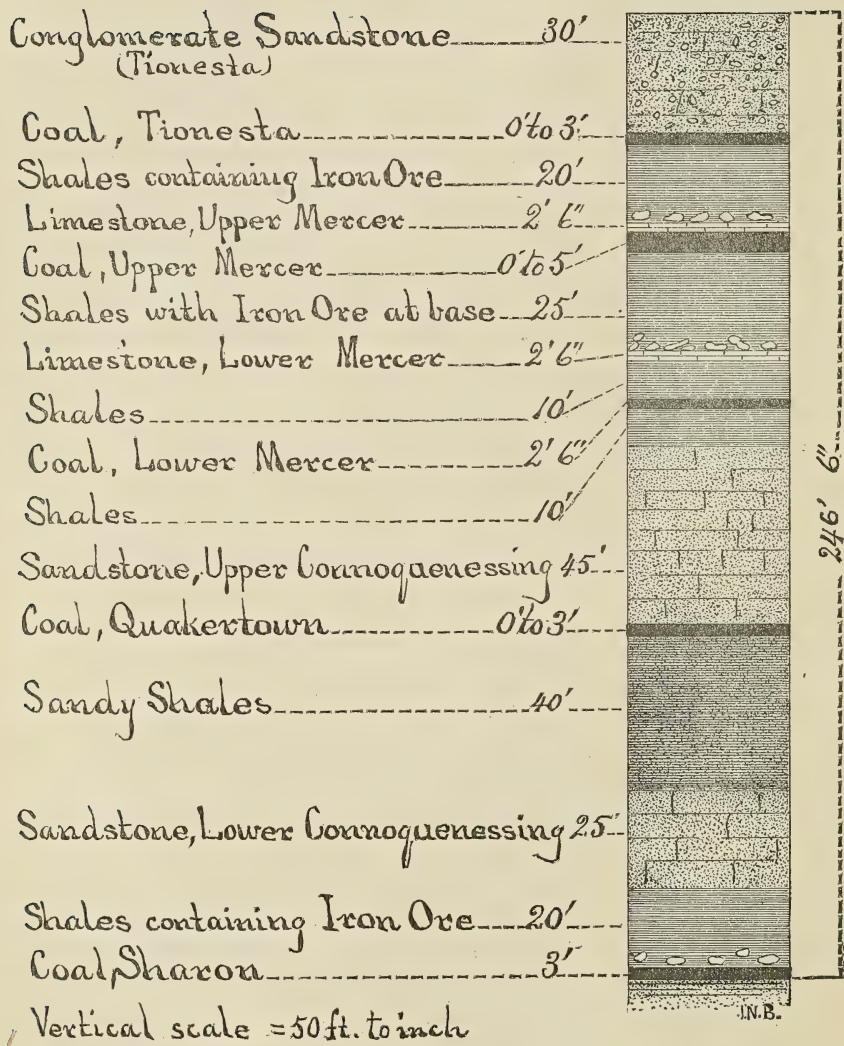 Conglomerate Sandstone 30'
(Tionesta)
Coal, Tionesta 0' to 3'
Shales containing Iron Ore 20'
Limestone, Upper Mercer 2' 6"
Coal, Upper Mercer 0' to 5'
Shales with Iron Ore at base 25'
Limestone, Lower Mercer 2' 6"
Shales 10'
Coal, Lower Mercer 2' 6"
Shales 10'
Sandstone, Upper Connoquenessing 45'
Coal, Quakertown 0' to 3'
Sandy Shales 40'
Sandstone, Lower Connoquenessing 25'
Shales containing Iron Ore 20'
Coal, Sharon 3'
Vertical scale = 50 ft. to inch
246' 6"
I.N.B.